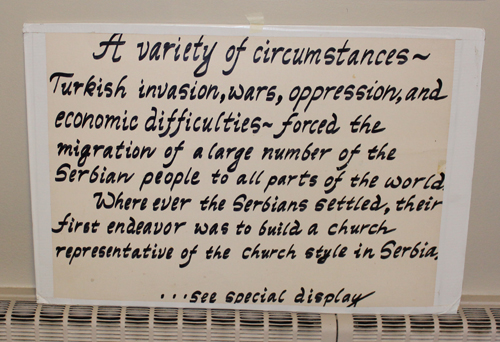 A variety of circumstances~
Turkish invasion, wars, oppression, and
economic difficulties~ forced the
migration of a large number of the
Serbian people to all parts of the world.
Where ever the Serbians settled, their
first endeavor was to build a church
representative of the church style in Serbia.
...see special display